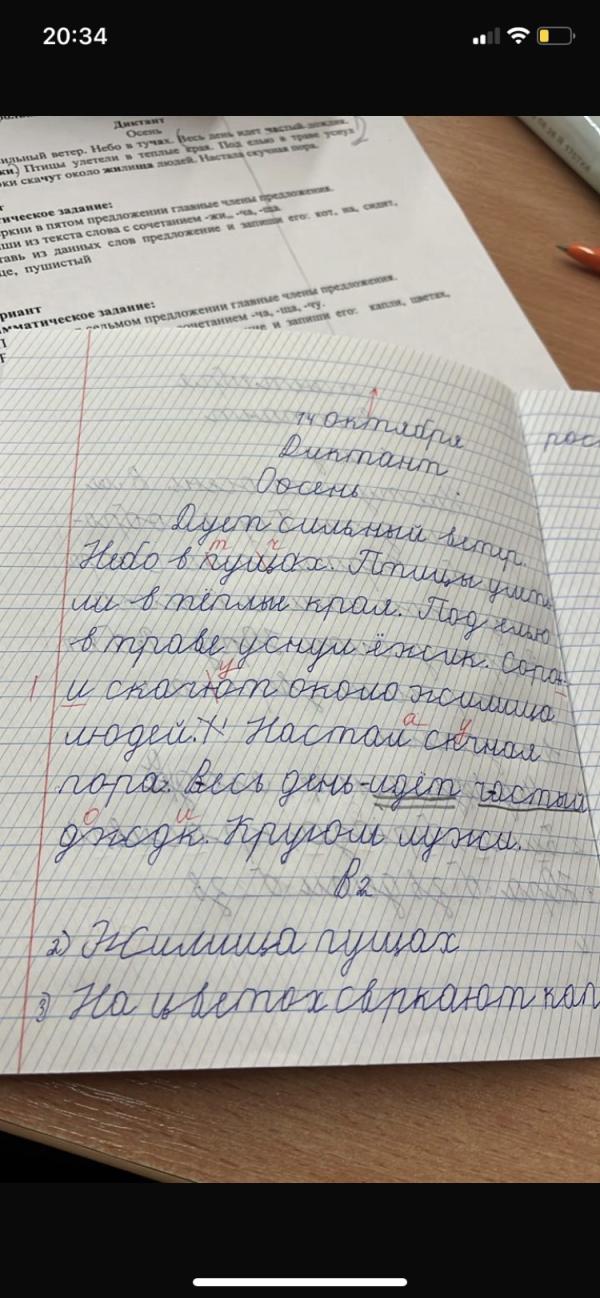 20:34
Диктант
Осень
сильный ветер. Небо в тучах. (Весь день идет частый дождик. 2
ки.) Птицы улетели в теплые края. Под елью в траве уснул
ки скачут около жилища людей. Настала скучная пора.
задание:
в пятом предложении главные члены предложения.
из текста слова с сочетанием -жи-, -ча, -ща.
из данных слов предложение и запиши его: кот, на, сидит,
пушистый
риант
мматическое задание:
седьмом предложении главные члены предложения.
сочетанием -ча, -ща, -чу.
и запиши его: капли, цветах,
14 октября
Диктант
Оосень
Дует сильный ветер.
т ч
Небо в гущах. Птицы улите
ли в тёплые края. Под елью
в траве уснул ёжик. Соро-
у
и скачют около жилища
а у
людей. Настал скчная
пора. Весь день идёт частый
о и
джсдк. Кругом лужи.
В2
2) Жилища гущах
3) На цветох свркают кап
рос